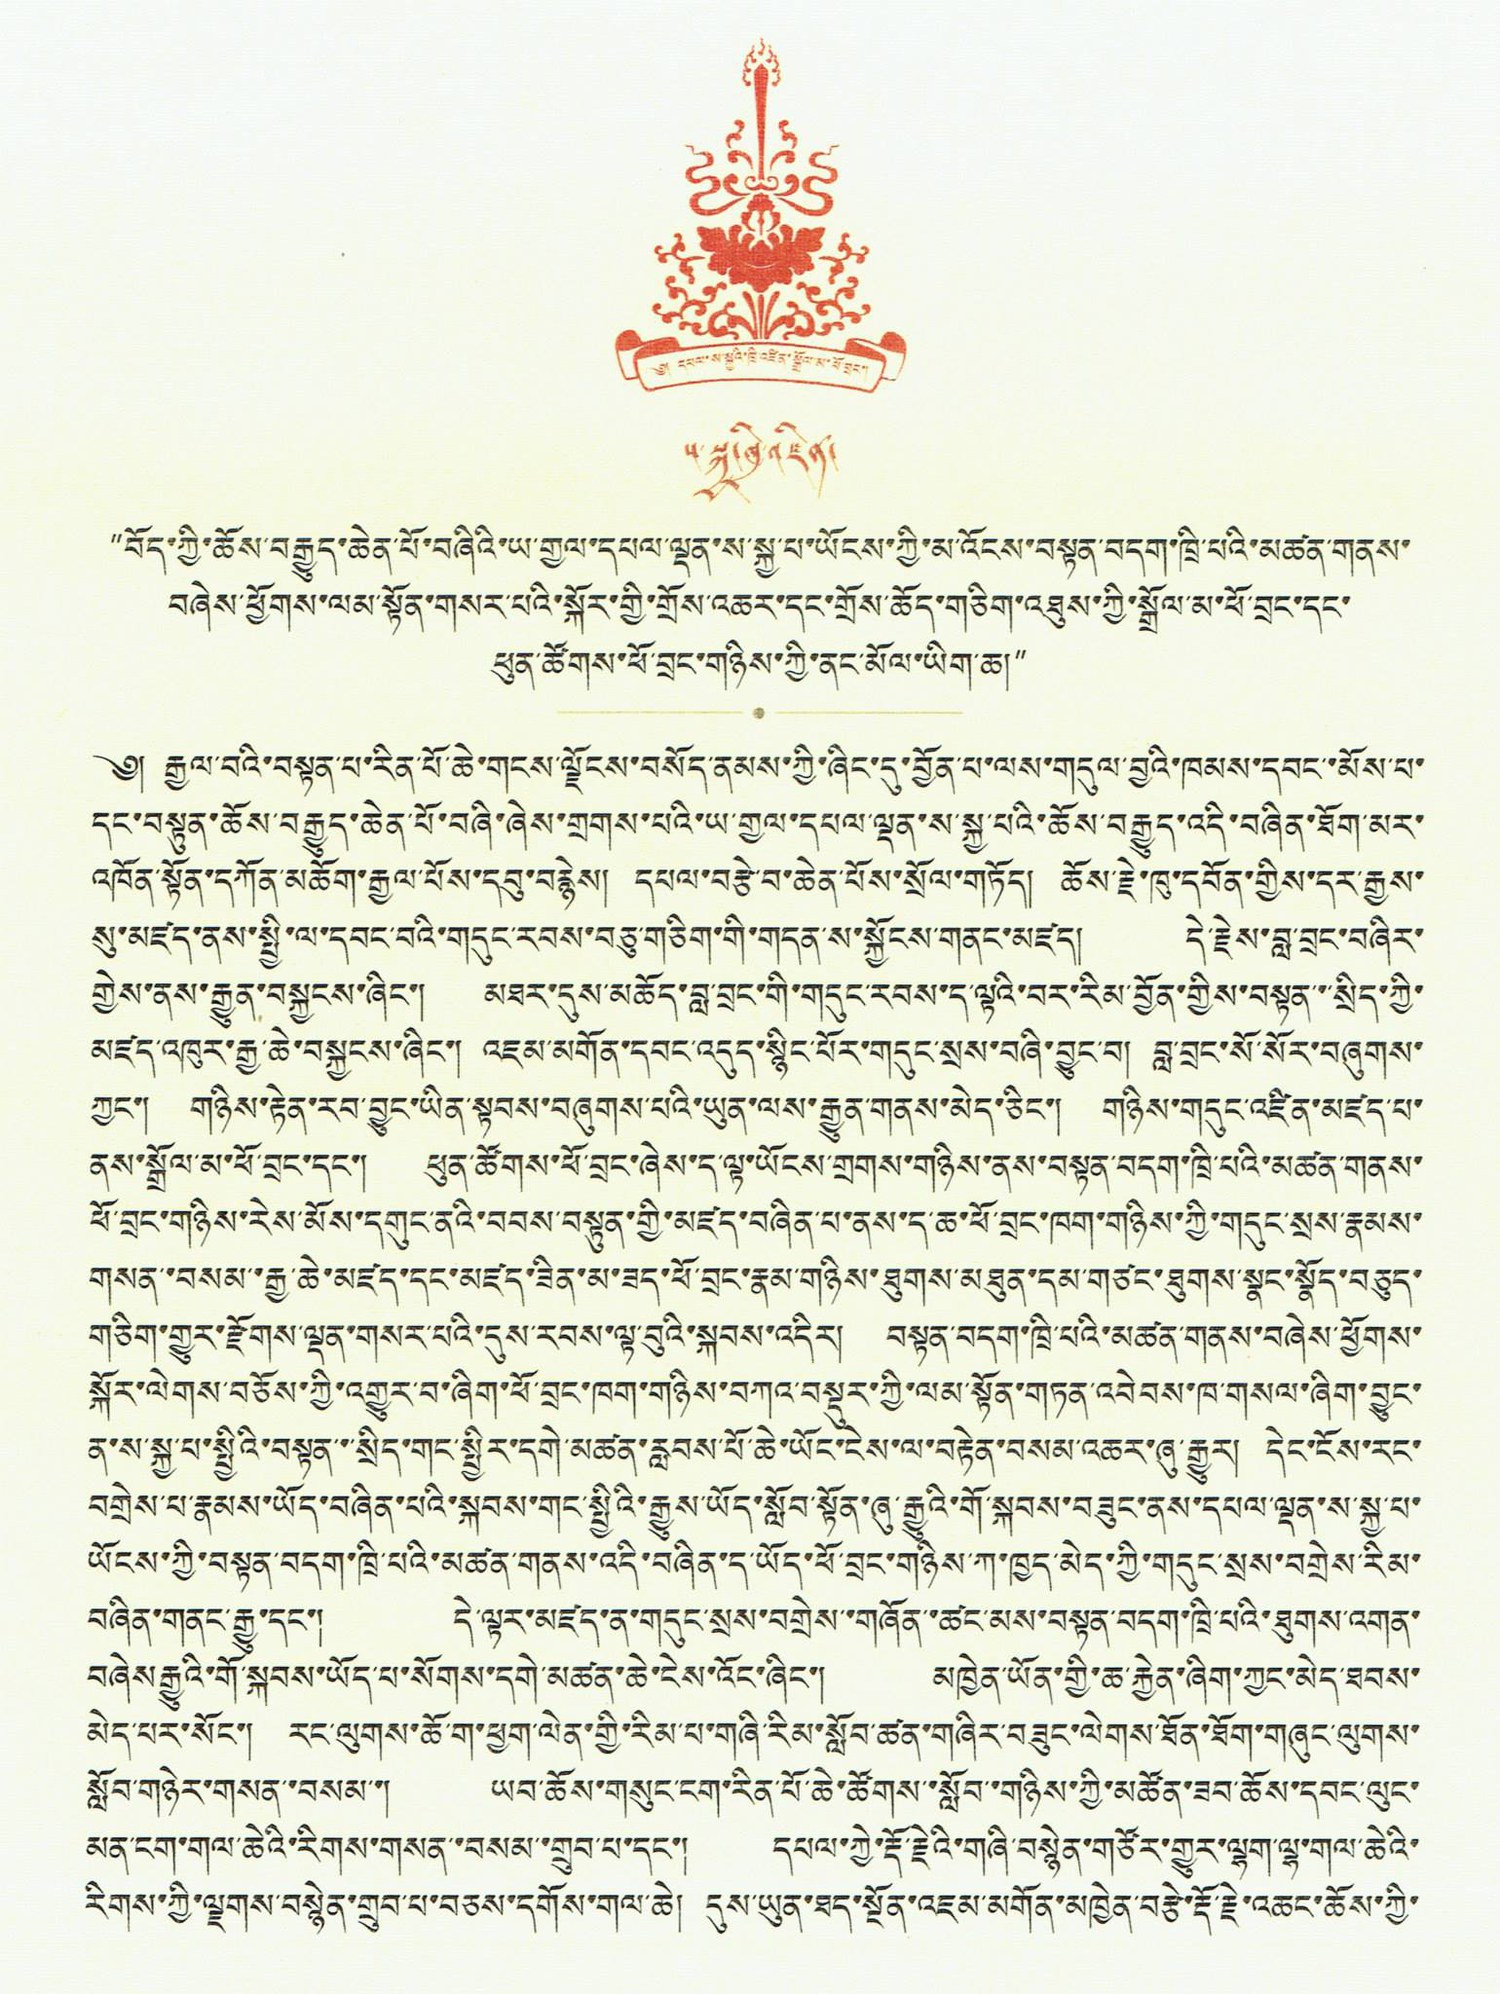 ༄༅། དཔལ་ས་སྐྱའི་ཁྲི་འཛིན་སྒྲོལ་མ་ཕོ་བྲང་།
"བོད་ཀྱི་ཆོས་བརྒྱུད་ཆེན་པོ་བཞིའི་ཡ་གྱལ་དཔལ་ལྡན་ས་སྐྱ་པ་ཡོངས་ཀྱི་མ་འོངས་བསྟན་བདག་ཁྲི་པའི་མཚན་གནས་
བཞེས་ཕྱོགས་ལམ་སྟོན་གསར་པའི་སྐོར་གྱི་གྲོས་འཆར་དང་གྲོས་ཆོད་གཅིག་འཐུས་ཀྱི་སྒྲོལ་མ་ཕོ་བྲང་དང་
ཕུན་ཚོགས་ཕོ་བྲང་གཉིས་ཀྱི་ནང་མོལ་ཡིག་ཆ།"
༄། རྒྱལ་བའི་བསྟན་པ་རིན་པོ་ཆེ་གངས་ལྗོངས་བསོད་ནམས་ཀྱི་ཞིང་དུ་བྱོན་པ་ལས་གདུལ་བྱའི་ཁམས་དབང་་མོས་པ་
དང་བསྟུན་ཆོས་བརྒྱུད་ཆེན་པོ་བཞི་ཞེས་གྲགས་པའི་ཡ་གྱལ་དཔལ་ལྡན་ས་སྐྱ་པའི་ཆོས་བརྒྱུད་འདི་བཞིན་ཐོག་མར་
འཁོན་སྟོན་དཀོན་མཆོག་རྒྱལ་པོས་དབུ་བརྙེས། དཔལ་བརྩེ་བ་ཆེན་པོས་སྲོལ་གཏོད། ཆོས་རྗེ་ཁུ་དབོན་གྱིས་དར་རྒྱས་
སུ་མཛད་ནས་སྤྱི་ལ་དབང་བའི་གདུང་རབས་བཅུ་གཅིག་གི་གདན་ས་སྐྱོངས་གནང་མཛད། དེ་རྗེས་བླ་བྲང་བཞིར་
གྱེས་ནས་རྒྱུན་བསྐྱངས་ཞིང་། མཐར་དུས་མཆོད་བླ་བྲང་གི་གདུང་རབས་ད་ལྟའི་བར་རིམ་བྱོན་གྱིས་བསྟན་་སྲིད་ཀྱི་
མཛད་འཁུར་རྒྱ་ཆེ་བསྐྱངས་ཞིང་། འཇམ་མགོན་དབང་འདུད་སྙིང་པོར་གདུང་སྲས་བཞི་བྱུང་བ། བླ་བྲང་སོ་སོར་བཞུགས་
ཀྱང་། གཉིས་རྟེན་རབ་བྱུང་ཡིན་སྟབས་བཞུགས་པའི་ཡུན་ལས་རྒྱུན་གནས་མེད་ཅིང་། གཉིས་གདུང་འཛིན་མཛད་པ་
ནས་སྒྲོལ་མ་ཕོ་བྲང་དང་། ཕུན་ཚོགས་ཕོ་བྲང་ཞེས་ད་ལྟ་ཡོངས་གྲགས་གཉིས་ནས་བསྟན་བདག་ཁྲི་པའི་མཚན་གནས་
ཕོ་བྲང་གཉིས་རེས་མོས་དགུང་ནའི་བབས་བསྟུན་གྱི་མཛད་བཞིན་པ་ནས་ད་ཆ་ཕོ་བྲང་ཁག་གཉིས་ཀྱི་གདུང་སྲས་རྣམས་
གསན་་བསམ་་རྒྱ་ཆེ་མཛད་དང་མཛད་ཟིན་མ་ཟད་ཕོ་བྲང་རྣམ་གཉིས་ཐུགས་མཐུན་དམ་གཙང་ཐུགས་སྣང་སྣོད་བཅུད་
གཅིག་གྱུར་རྫོགས་ལྡན་གསར་པའི་དུས་རབས་ལྟ་བུའི་སྐབས་འདིར། བསྟན་བདག་ཁྲི་པའི་མཚན་གནས་བཞེས་ཕྱོགས་
སྐོར་ལེགས་བཅོས་ཀྱི་འགྱུར་བ་ཞིག་ཕོ་བྲང་ཁག་གཉིས་བཀའ་བསྡུར་ཀྱི་ལམ་སྟོན་གཏན་འབེབས་ཁ་གསལ་ཞིག་བྱུང་
ན་ས་སྐྱ་པ་སྤྱིའི་བསྟན་་སྲིད་གང་སྤྱིར་དགེ་མཚན་རླབས་པོ་ཆེ་ཡོང་ངེས་ལ་བརྟེན་བསམ་འཆར་ཞུ་རྒྱུར། དེང་ངོས་རང་
བགྲེས་པ་རྣམས་ཡོད་བཞིན་པའི་སྐབས་གང་སྤྱིའི་རྒྱུས་ཡོད་སློབ་སྟོན་ཞུ་རྒྱུའི་གོ་སྐབས་བཟུང་ནས་དཔལ་ལྡན་ས་སྐྱ་པ་
ཡོངས་ཀྱི་བསྟན་བདག་ཁྲི་པའི་མཚན་གནས་འདི་བཞིན་ད་ཡོད་ཕོ་བྲང་གཉིས་ཀ་ཁྱད་མེད་ཀྱི་གདུང་སྲས་བགྲེས་རིམ་
བཞིན་གནང་རྒྱུ་དང་། དེ་ལྟར་མཛད་ན་གདུང་སྲས་བགྲེས་་གཞོན་་ཚང་མས་བསྟན་བདག་ཁྲི་པའི་ཐུགས་འགན་
བཞེས་རྒྱུའི་གོ་སྐབས་ཡོད་པ་སོགས་དགེ་མཚན་ཆེ་ངེས་འོང་ཞིང་། མཁྱེན་ཡོན་གྱི་ཆ་རྐྱེན་ཞིག་ཀྱང་མེད་ཐབས་
མེད་པར་སོང་། རང་ལུགས་ཆོ་ག་ཕྱག་ལེན་གྱི་རིམ་པ་གཞི་རིམ་སློབ་ཚན་གཞིར་བཟུང་ལེགས་ཐོན་ཐོག་གཞུང་ལུགས་
སློབ་གཉེར་གསན་་བསམ་། ཡབ་ཆོས་གསུང་ངག་རིན་པོ་ཆེ་ཚོགས་་སློབ་་གཉིས་ཀྱི་མཚོན་ཟབ་ཆོས་དབང་ལུང་
མན་ངག་གལ་ཆེའི་རིགས་གསན་་བསམ་་གྲུབ་པ་དང་། དཔལ་ཀྱེ་རྡོ་རྗེའི་གཞི་བསྙེན་གཙོར་གྱུར་ལྷག་ལྷ་གལ་ཆེའི་
རིགས་ཀྱི་ལྗགས་བསྙེན་གྲུབ་པ་བཅས་དགོས་གལ་ཆེ། དུས་ཡུན་ཐད་སྔོན་འཇམ་མགོན་མཁྱེན་བརྩེ་རྡོ་རྗེ་འཆང་ཆོས་ཀྱི་